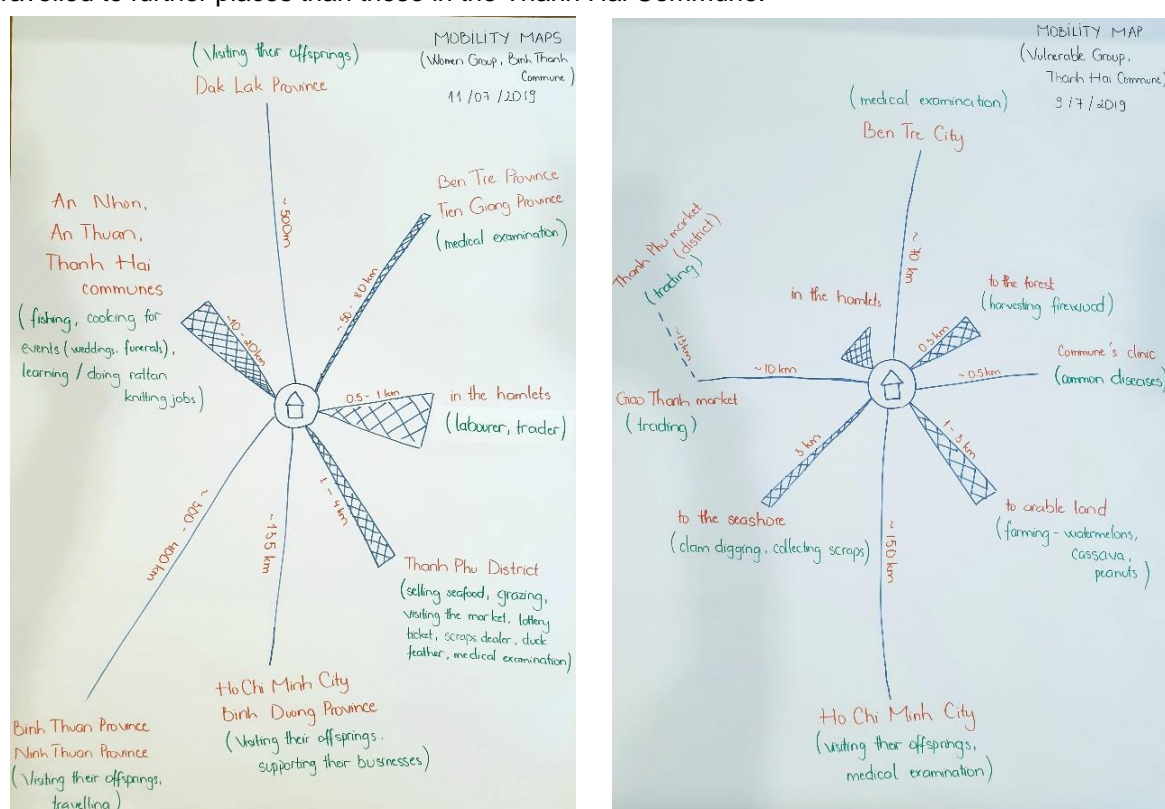 travelled to further places than those in the Thanh Hai Commune.
MOBILITY MAPS
(Women Group, Binh Thanh
Commune)
11/07/2019
(Visiting their offsprings)
Dak Lak Province
~500m
Ben Tre Province
Tien Giang Province
(medical examination)
~50-80km
An Nhon,
An Thuan,
Thanh Hai
communes
(fishing, cooking for
events (weddings, funerals),
learning / doing rattan
knitting jobs)
~10-20km
0.5-1 km
in the hamlets
(labourer, trader)
1-4km
Thanh Phu District
(selling seafood, grazing,
visiting the market, lottery
ticket, scraps dealer, duck
feather, medical examination)
~135 km
Ho Chi Minh City
Binh Duong Province
(Visiting their offsprings,
supporting their businesses)
~300-400km
Binh Thuan Province
Ninh Thuan Province
(Visiting their offsprings,
travelling)
MOBILITY MAP
(Vulnerable Group,
Thanh Hai Commune)
9/7/2019
(medical examination)
Ben Tre City
~70 km
Thanh Phu market
(district)
(trading)
~13km
in the hamlets
to the forest
(harvesting firewood)
0.5km
Commune's clinic
(common diseases)
~0.5km
~10km
Giao Thanh market
(trading)
3 km
to the seashore
(clam digging, collecting scraps)
1-5km
to arable land
(farming - watermelons,
cassava,
peanuts)
~150 km
Ho Chi Minh City
(visiting their offsprings,
medical examination)